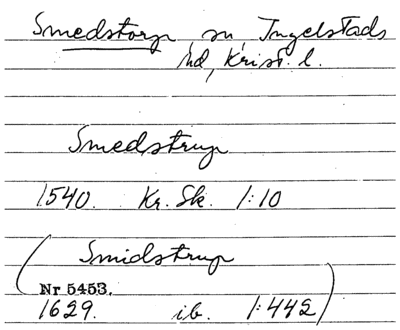 Smedstorp sn Ingelstads
hd, Krist. l.
Smedstrup
1540. Kr. Sk. 1:10
(Smidstrup
Nr 5453.
1629. ib. 1:442)